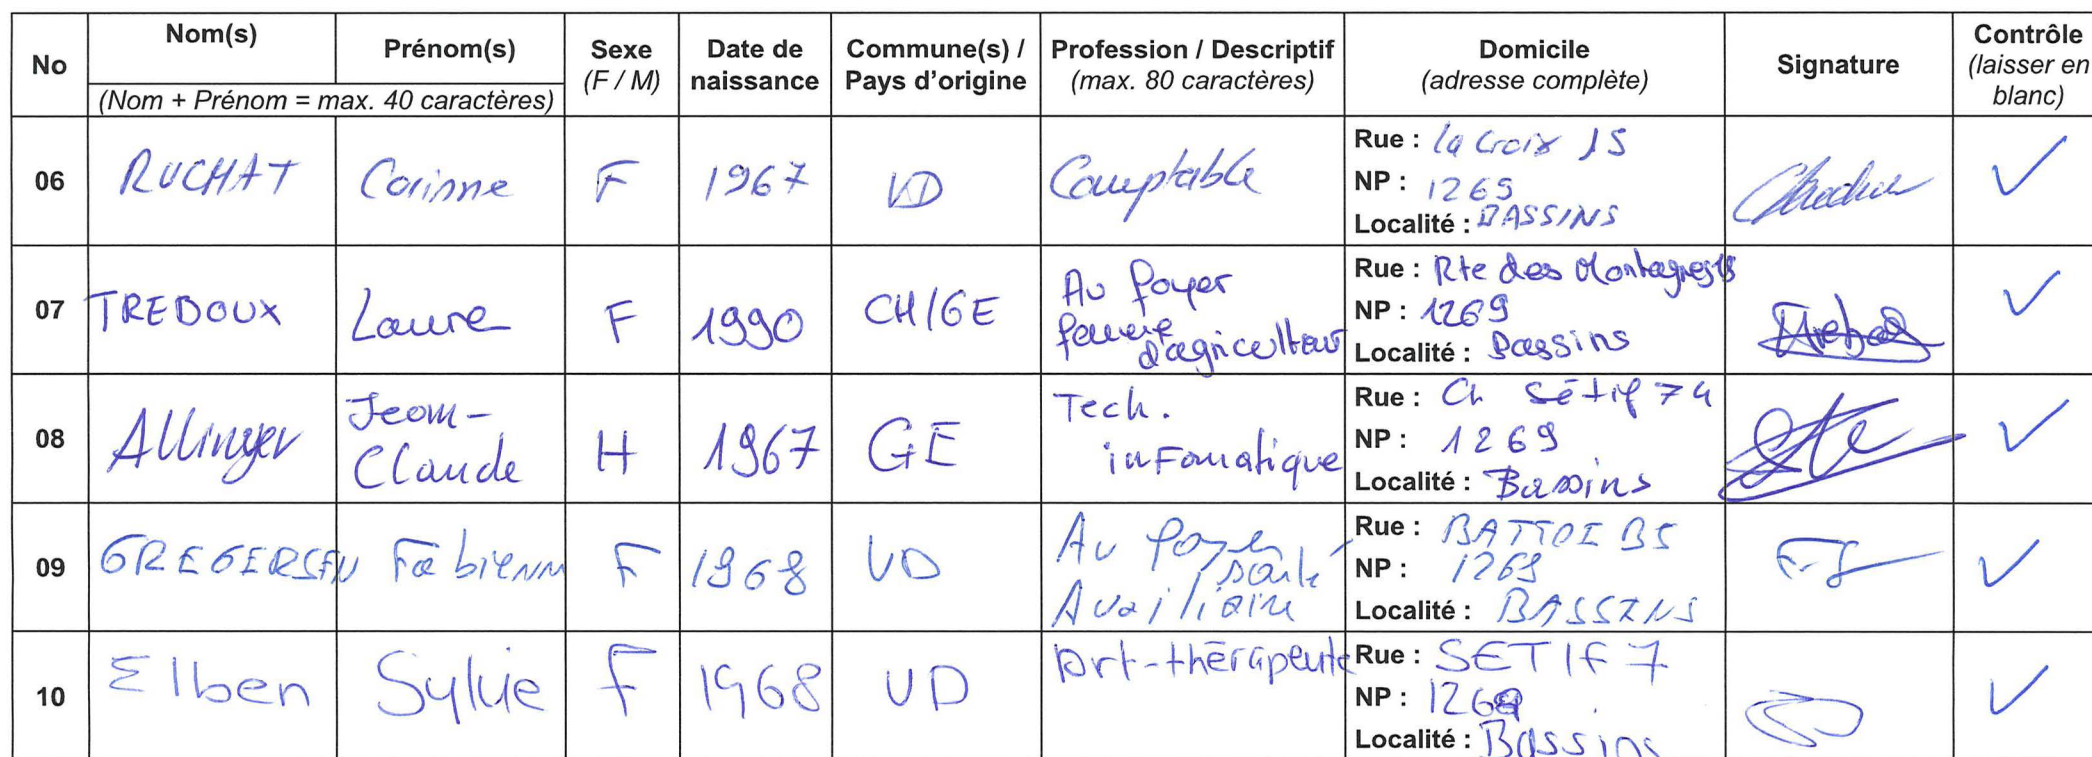 No Nom(s) Prénom(s) Sexe (F / M) Date de naissance Commune(s) / Pays d'origine Profession / Descriptif (max. 80 caractères) Domicile (adresse complète) Signature Contrôle (laisser en blanc)
(Nom + Prénom = max. 40 caractères)
06 RUCHAT Corinne F 1967 VD Comptable Rue : la Croix 15
NP : 1269
Localité : BASSINS
07 TREBOUX Laure F 1990 CH/GE Au foyer femme d'agriculteur Rue : Rte des Montagnes
NP : 1269
Localité : Bassins
08 Allinger Jean-Claude H 1967 GE Tech. infomatique Rue : Ch Sétif 74
NP : 1269
Localité : Bassins
09 GREGERSEN Fabienn F 1968 VD Au foyer Auxiliaire santé Rue : BATTOI B5
NP : 1269
Localité : BASSINS
10 Elben Sylvie F 1968 VD Art-thérapeute Rue : SETIF 7
NP : 1269
Localité : Bassins